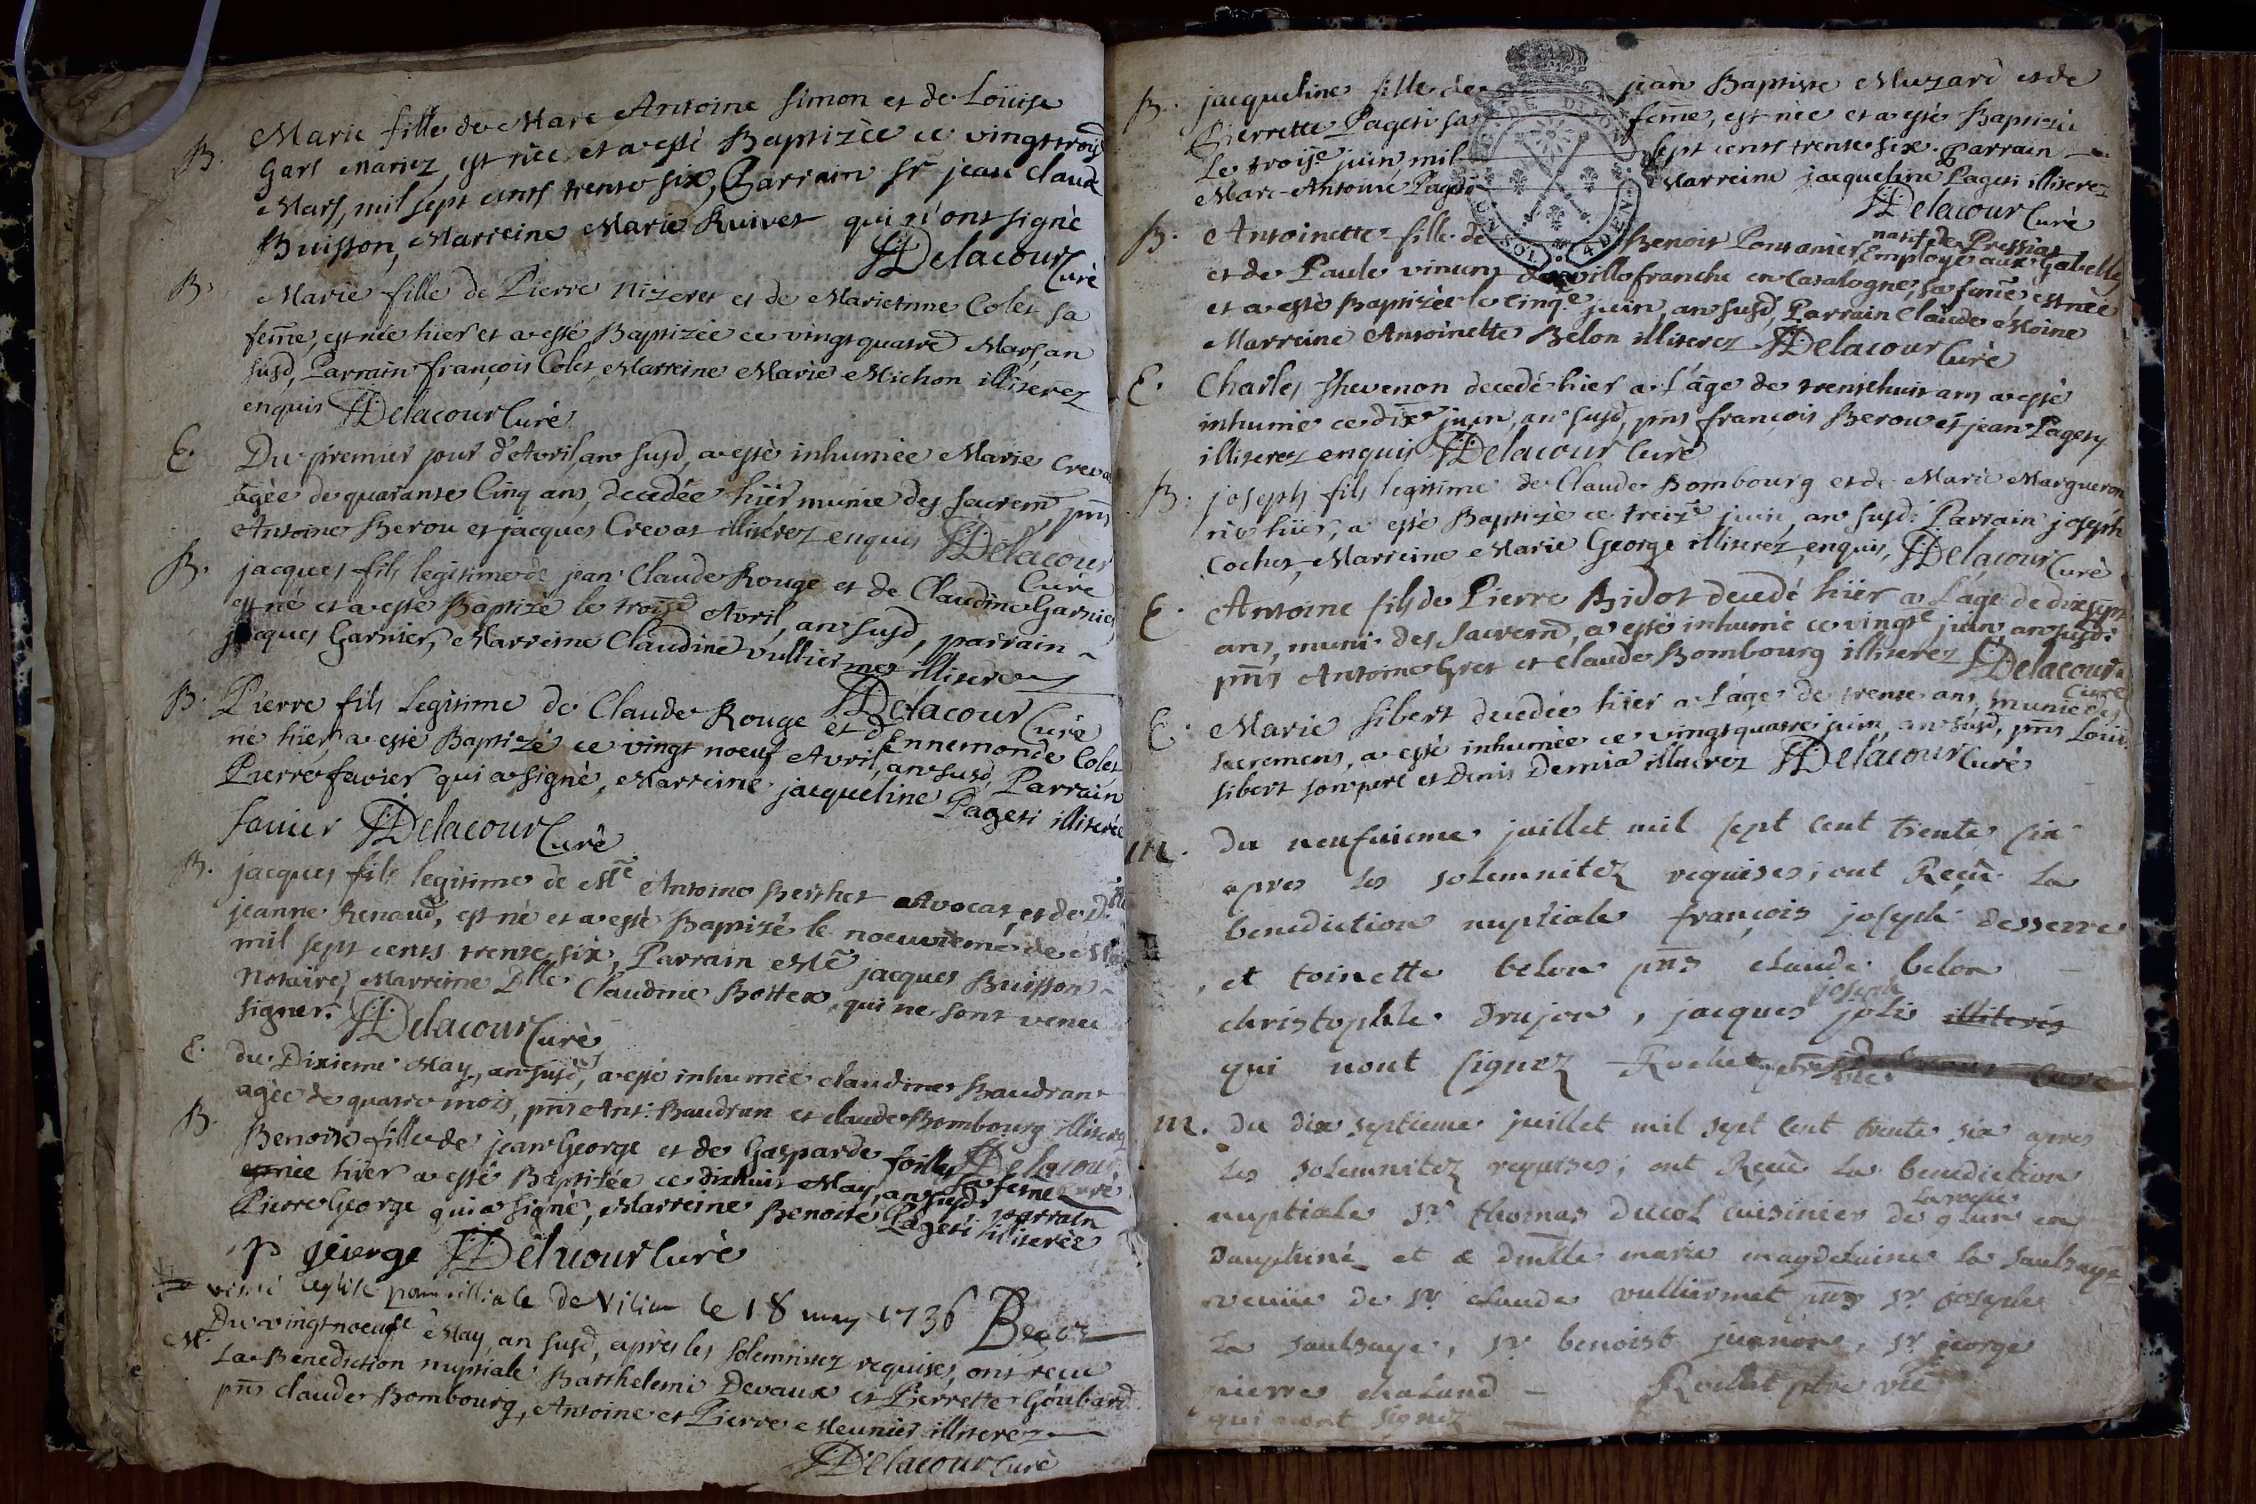 B. Marie fille de Marc Antoine Simon et de Loüise
Gars mariez, est née et a esté Baptizée ce vingt trois
Mars, mil sept cents trente six, Parrain Sr jean Claude
Buisson, Marreine Marie Ruivet qui n'ont signé
Delacour Curé
B. Marie fille de Pierre Nizeret et de Marie Anne Colet sa
feme, est née hier et a esté Baptizée ce vingt quatre Mars, an
susd, Parrain françois Colet, Marreine Marie Michon illiterez
enquis Delacour Curé
E. Du premier jour d'Avril an susd, a esté inhumée Marie Crevat
agée de quarante Cinq ans, decedée hier, munie des sacrem, pns
Antoine Berou et jacques Crevat illiterez enquis Delacour
Curé
B. jacques fils legitime de jean Claude Rouge et de Claudine Garnier
est né et a esté Baptizé le troise Avril, an susd, parrain
jacques Garnier, Marreine Claudine Vulliermet illiterez
Delacour Curé
B. Pierre fils legitime de Claude Rouge et d'Ennemonde Colet
né hier, a esté Baptizé ce vingt noeuf Avril, an susd, Parrain
Pierre favier qui a signé, Marreine jacqueline Pageti illiterée
favier Delacour Curé
B. jacques fils legitime de Me Antoine Berthet Avocat, et de Dlle
jeanne Renaud, est né et a esté Baptizé le noeuvieme de May
mil sept cents trente six, Parrain Me jacques Buisson
Notaire, Marreine Dlle Claudine Bottex, qui ne sont venu
signer. Delacour Curé
E. du Dixieme May, an susd, a esté inhumée claudine Baudran
agée de quatre mois, pns Ant: Baudran et claude Bombourg illiterez
Delacour Curé
B. Benoite fille de jean George et de Gasparde foilly sa feme
née hier a esté Baptizée ce dixhuit May, an susd, parrain
Pierre George qui a signé, Marreine Benoite Pageti illiterée
P george Delacour Curé
visité l'eglise parroissiale de Vilieu le 18 may 1736
M. Du vingt noeufe May, an susd, après les solemnitez requises, ont recu
La Benediction nuptiale Barthelemi Devaux et Pierrette Goubard
pns claude Bombourg, Antoine et Pierre Meunier illiterez
Delacour Curé
B. jacqueline fille de jean Baptiste Muzard et de
Pierrette Pageti sa feme, est née et a esté Baptizée
Le troise juin mil sept cents trente six. Parrain
Marc-Antoine Pageti Marreine jacqueline Pageti illiterez
Delacour Curé
B. Antoinette fille de Benoit Pontanier natif de Pressiat employé aux Gabelles
et de Paule vinun de villefranche en Catalogne, sa feme, est née
et a esté Baptizée le cinqe juin, an susd, Parrain Claude Moine
Marreine Antoinette Belon illiterez Delacour Curé
E. Charles Thevenon decedé hier a l'âge de trentehuit ans a esté
inhumé ce dixe juin, an susd, pns francois Berou et jean Pagety
illiterez enquis Delacour Curé
B. joseph fils legitime de Claude Bombourg et de Marie Margueron
né hier, a esté Baptizé ce treize juin, an susd: Parrain joseph
Cochet, Marreine Marie George illiterez enquis, Delacour Curé
E. Antoine fils de Pierre Bidot decedé hier a l'âge de dixsept
ans, muni des sacrem, a esté inhumé ce vingte juin, an susd:
pns Antoine Gret et claude Bombourg illiterez Delacour
Curé
E. Marie Sibert decedée hier a l'âge de trente ans, munie des
sacremens, a esté inhumée ce vingtquatre juin, an susd, pns Loüis
Sibert son pere et Denis Demia illiterez Delacour Curé
M. du neufuieme juillet mil sept cent trente six
apres les solemnitez requises, ont Reçu la
benediction nuptiale françois joseph desserre
et toinette belon pns claude belon
christophle drujon, jacques joseph joli illiterés
qui nont signez Rochet
M. du dix septieme juillet mil sept cent trente six apres
les solemnitez requises, ont Reçu la benediction
nuptiale Sr thomas ducol cuisinier de la roche glun en
dauphiné et dmlle marie magdelaine la saulsaye
veuue de Sr claude vulliermet pns Sr joseph
la saulsaye, Sr benoist juenon, Sr george
pierre chaland Rochet ptre vic
qui nont signez